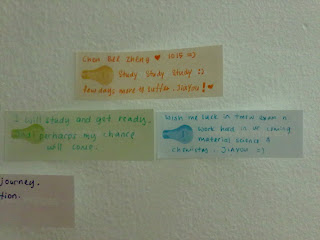 Chen Bee Zheng ♥ 1015 =)
Study Study Study :)
few days more to suffer. Jiayou! ♥
I will study and get ready,
and perhaps my chance
will come.
Wish me luck in
work hard in
material science &
chemistry. JIAYOU =)
journey.
tion.